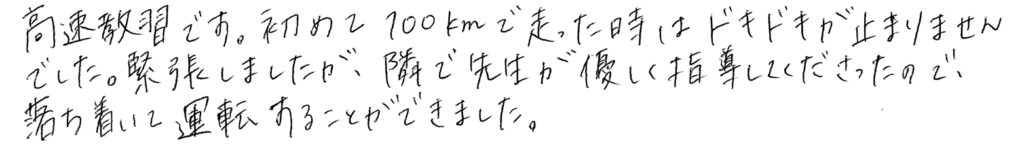 高速教習です。初めて100kmで走った時はドキドキが止まりません
でした。緊張しましたが、隣で先生が優しく指導してくださったので、
落ち着いて運転することができました。